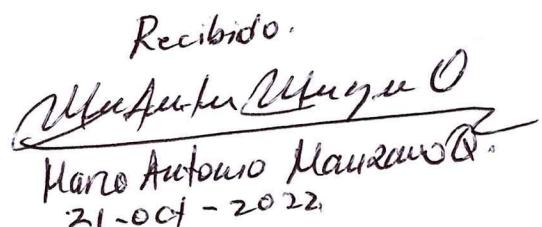 Recibido.
Marco Antonio Manzano Q.
21-oct-2022